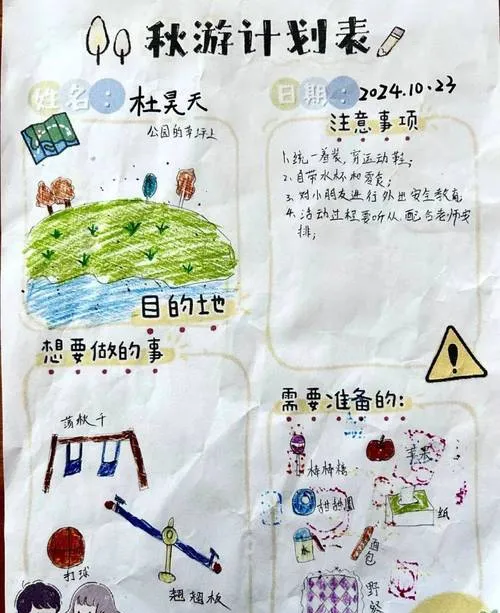 秋游计划表
姓名:杜昊天
日期:2024.10.23
公园的草坪上
目的地
注意事项
1.统一着装,穿运动鞋;
2.自带水杯和零食;
3.对小朋友进行外出安全教育
4.活动过程要听从、配合老师安
排;
想要做的事
荡秋千
打球
翘翘板
需要准备的:
棒棒糖
苹果
甜甜圈
纸
面包
野餐